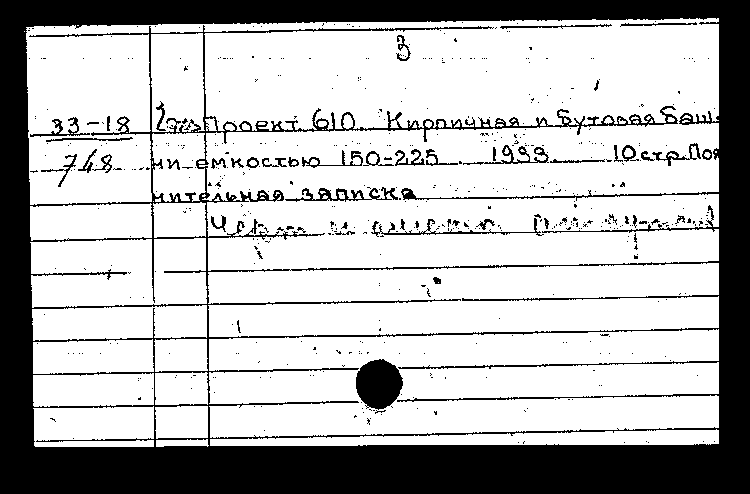 3
33-18 Проект 610. Кирпичная и бутовая баш-
748 ни емкостью 150-225 1933. 10 стр. Поя
нительная записка
Черт и